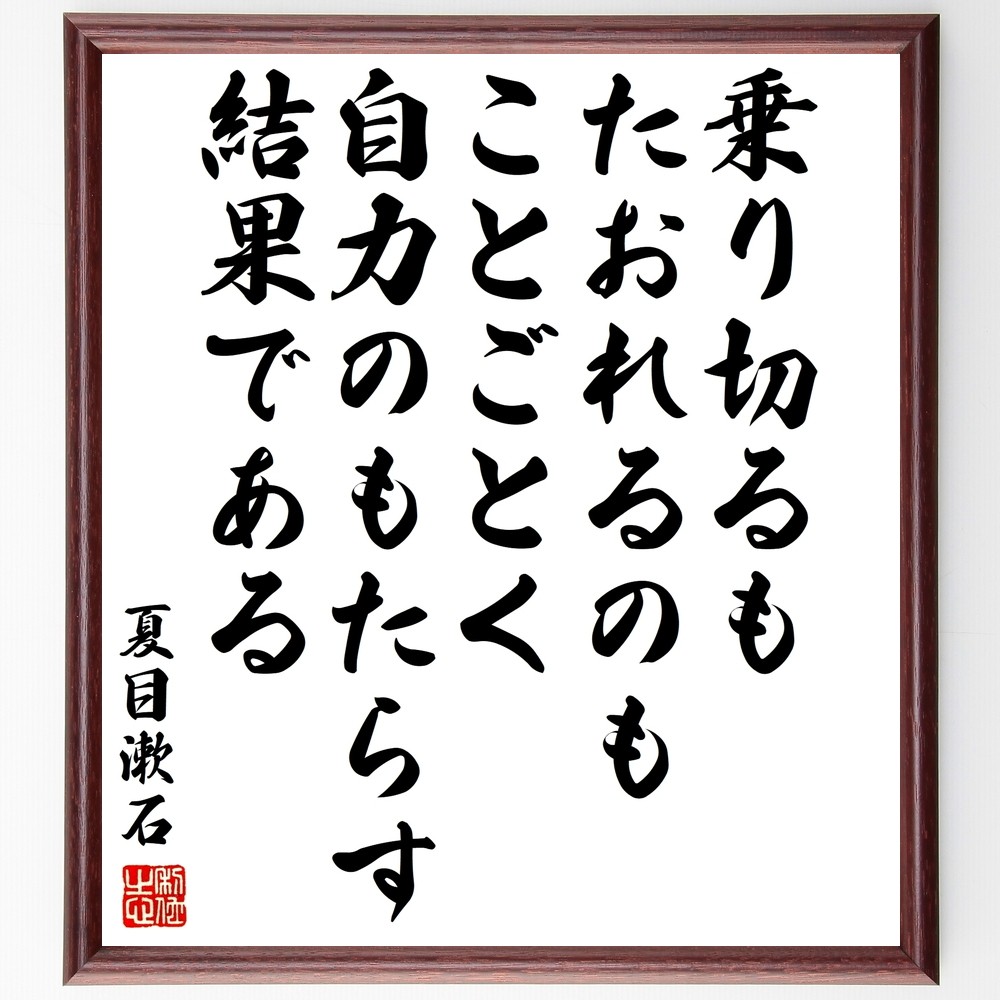 乗り切るも
たおれるのも
ことごとく
自力のもたらす
結果である
夏目漱石